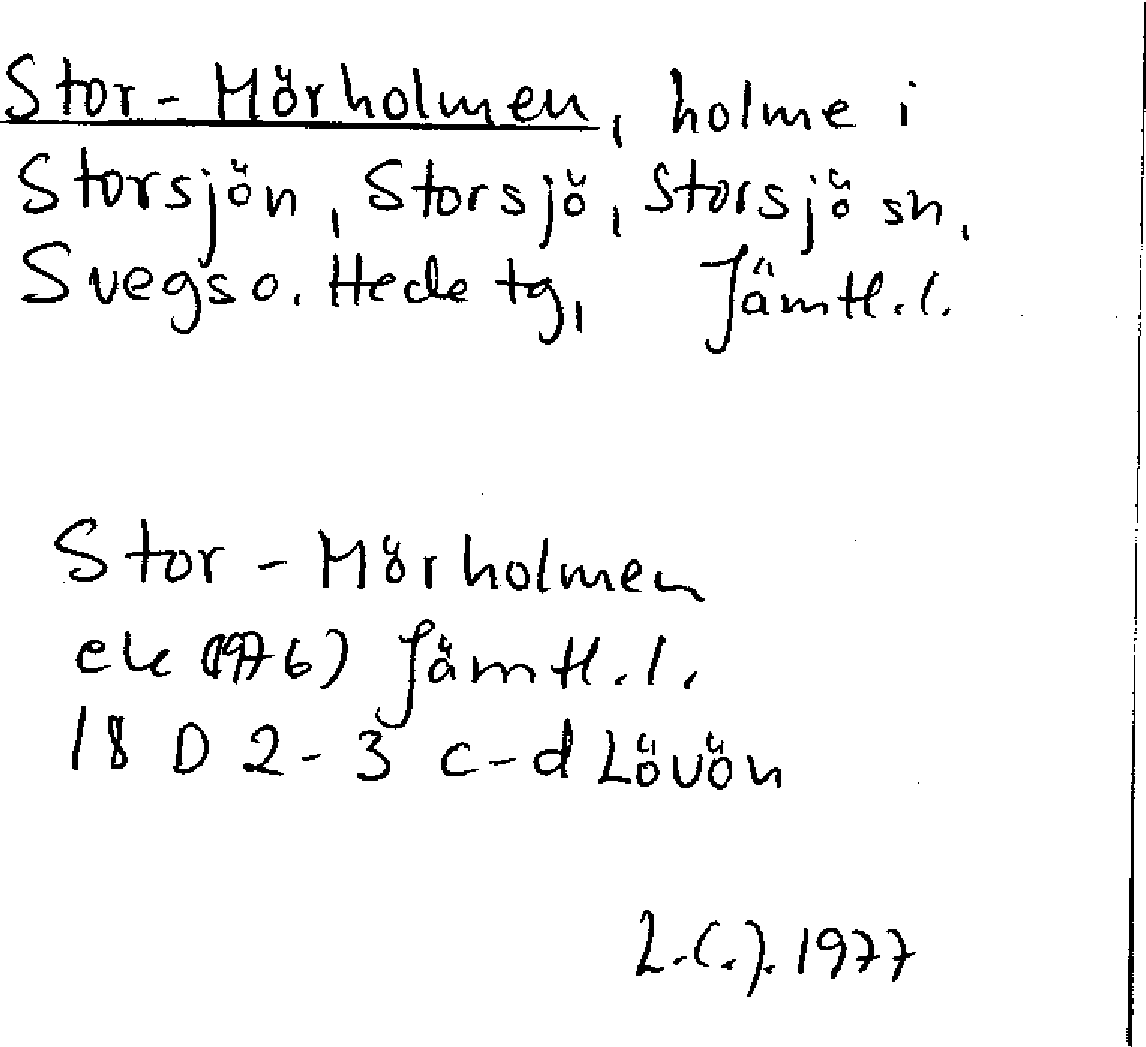 Stor-Mörholmen, holme i
Storsjön, Storsjö, Storsjö sn,
Svegs o. Hede tg, Jämtl.l.
Stor-Mörholmen
ek (1976) Jämtl.l.
18 D 2-3 c-d Lövön
L.C.J. 1977